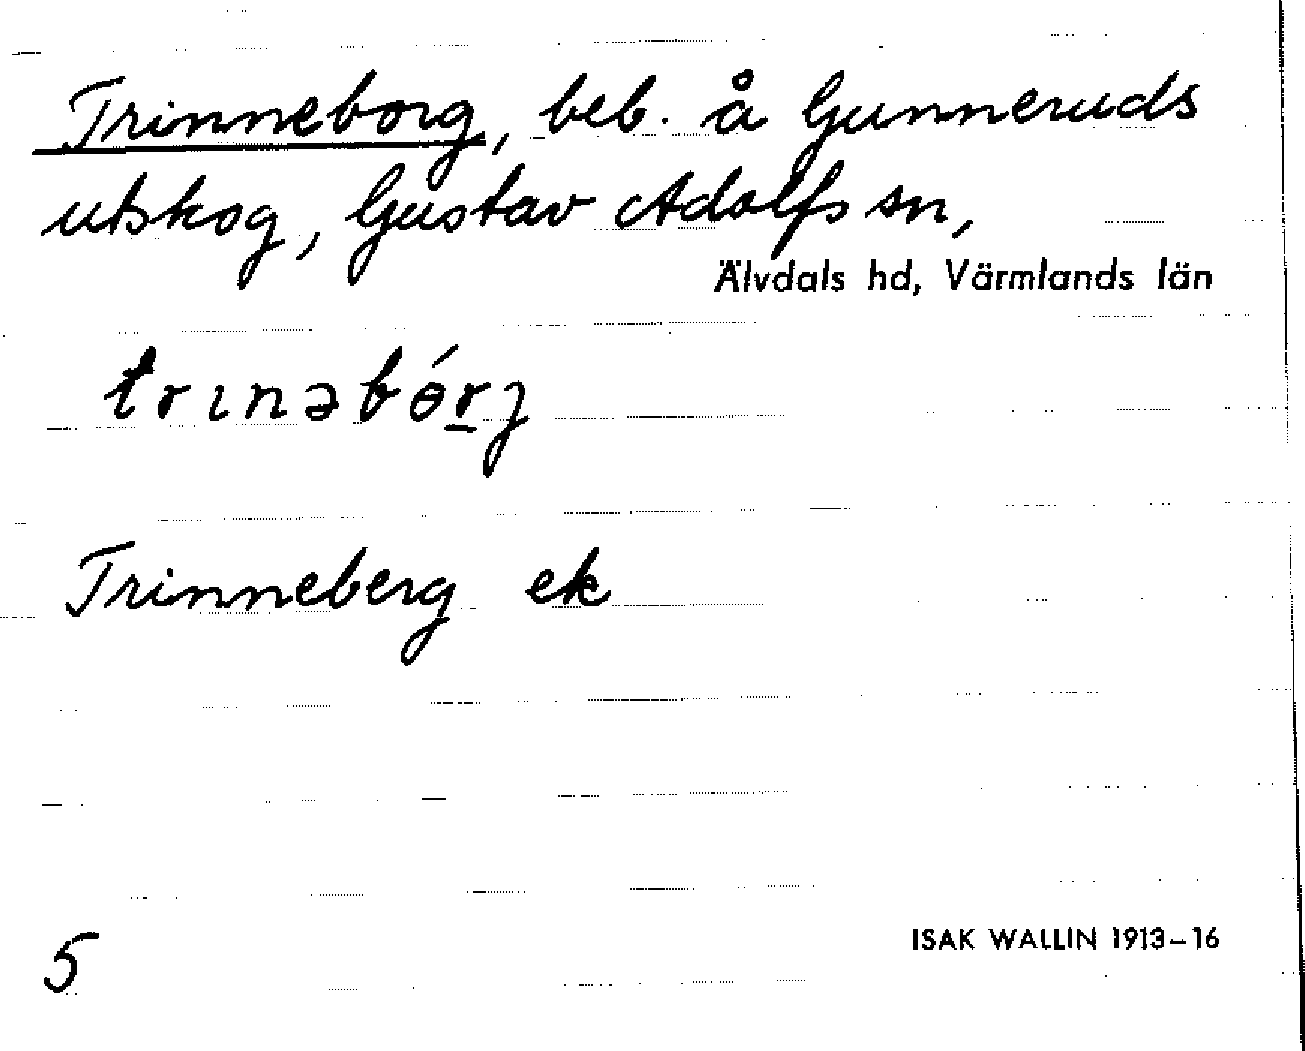 Trinneborg, beb. å Gunneruds
utskog, Gustav Adolfs sn,
Älvdals hd, Värmlands län
trınəbɵ́r̲ȷ
Trinneberg ek
5
ISAK WALLIN 1913–16